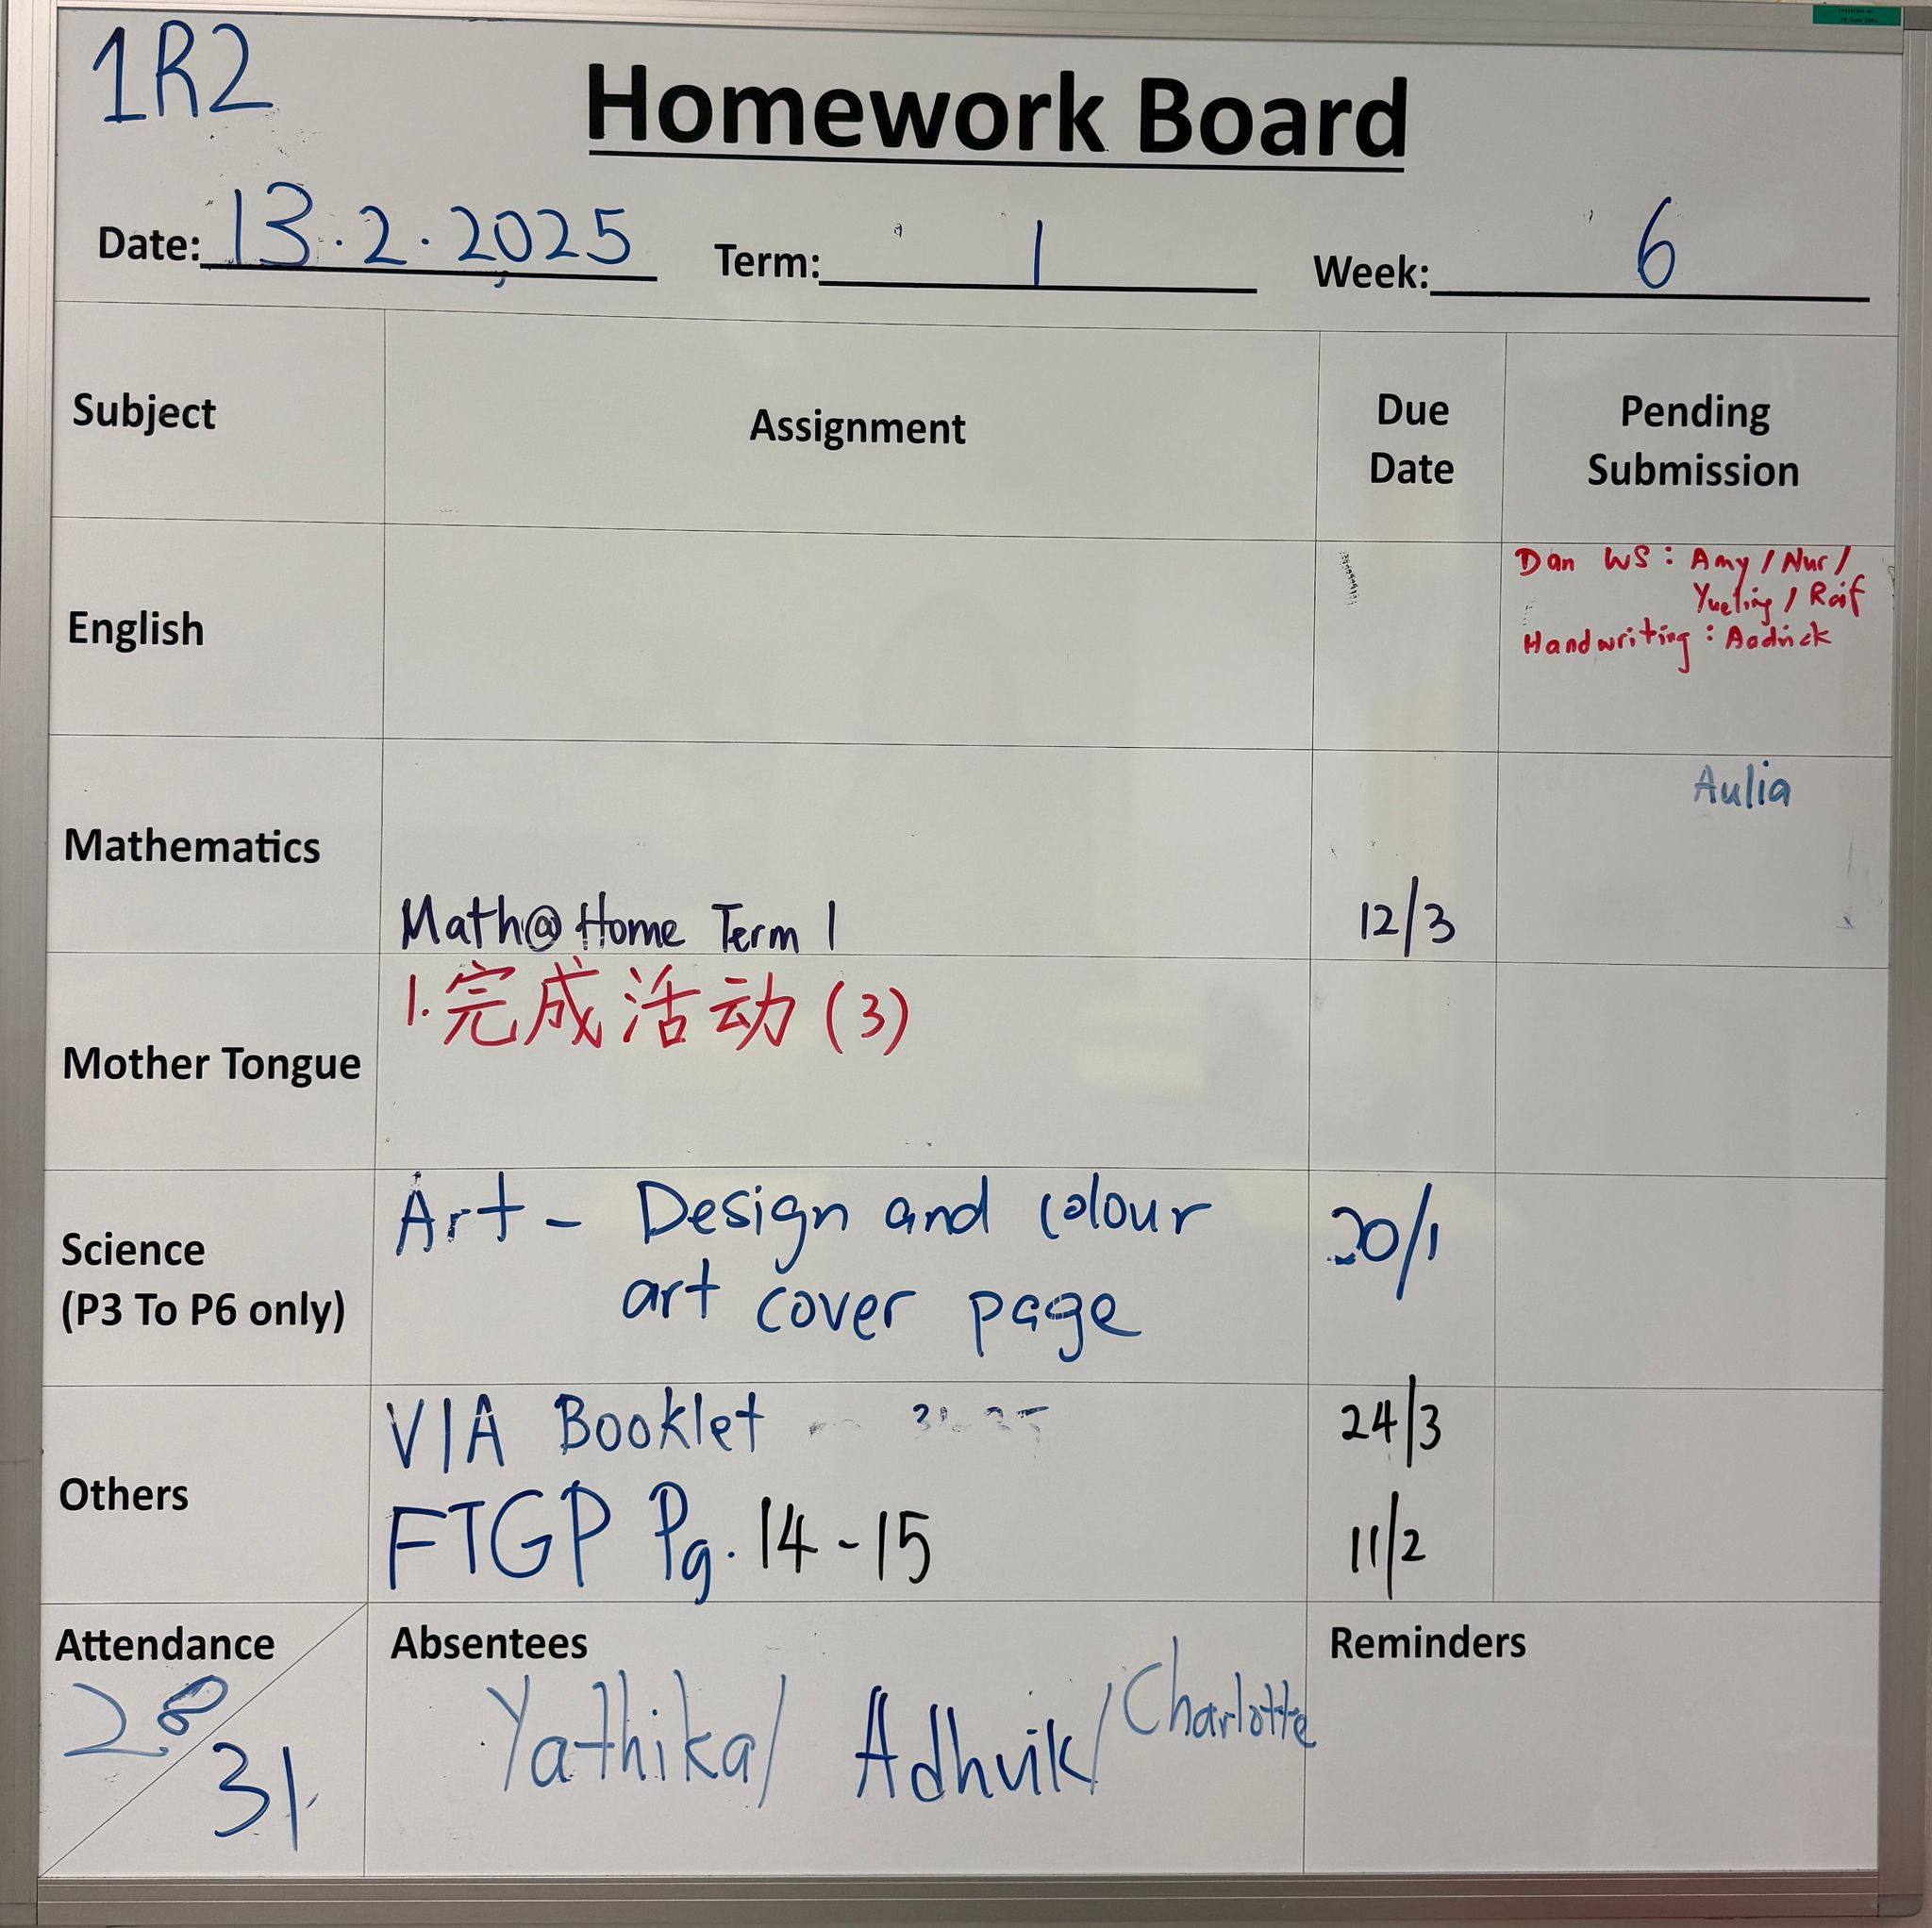 1R2
Homework Board
Date: 13.2.2025 Term: 1 Week: 6
Subject Assignment Due Date Pending Submission
English
Dan WS: Amy / Nur /
Yueling / Raif
Handwriting: Aadrick
Mathematics
Aulia
Math@Home Term 1 12/3
Mother Tongue
1. 完成活动(3)
Science
(P3 To P6 only)
Art - Design and colour 20/1
art cover page
Others
VIA Booklet 24/3
FTGP Pg. 14-15 11/2
Attendance Absentees Reminders
28/31
Yathika/ Adhvik/ Charlotte